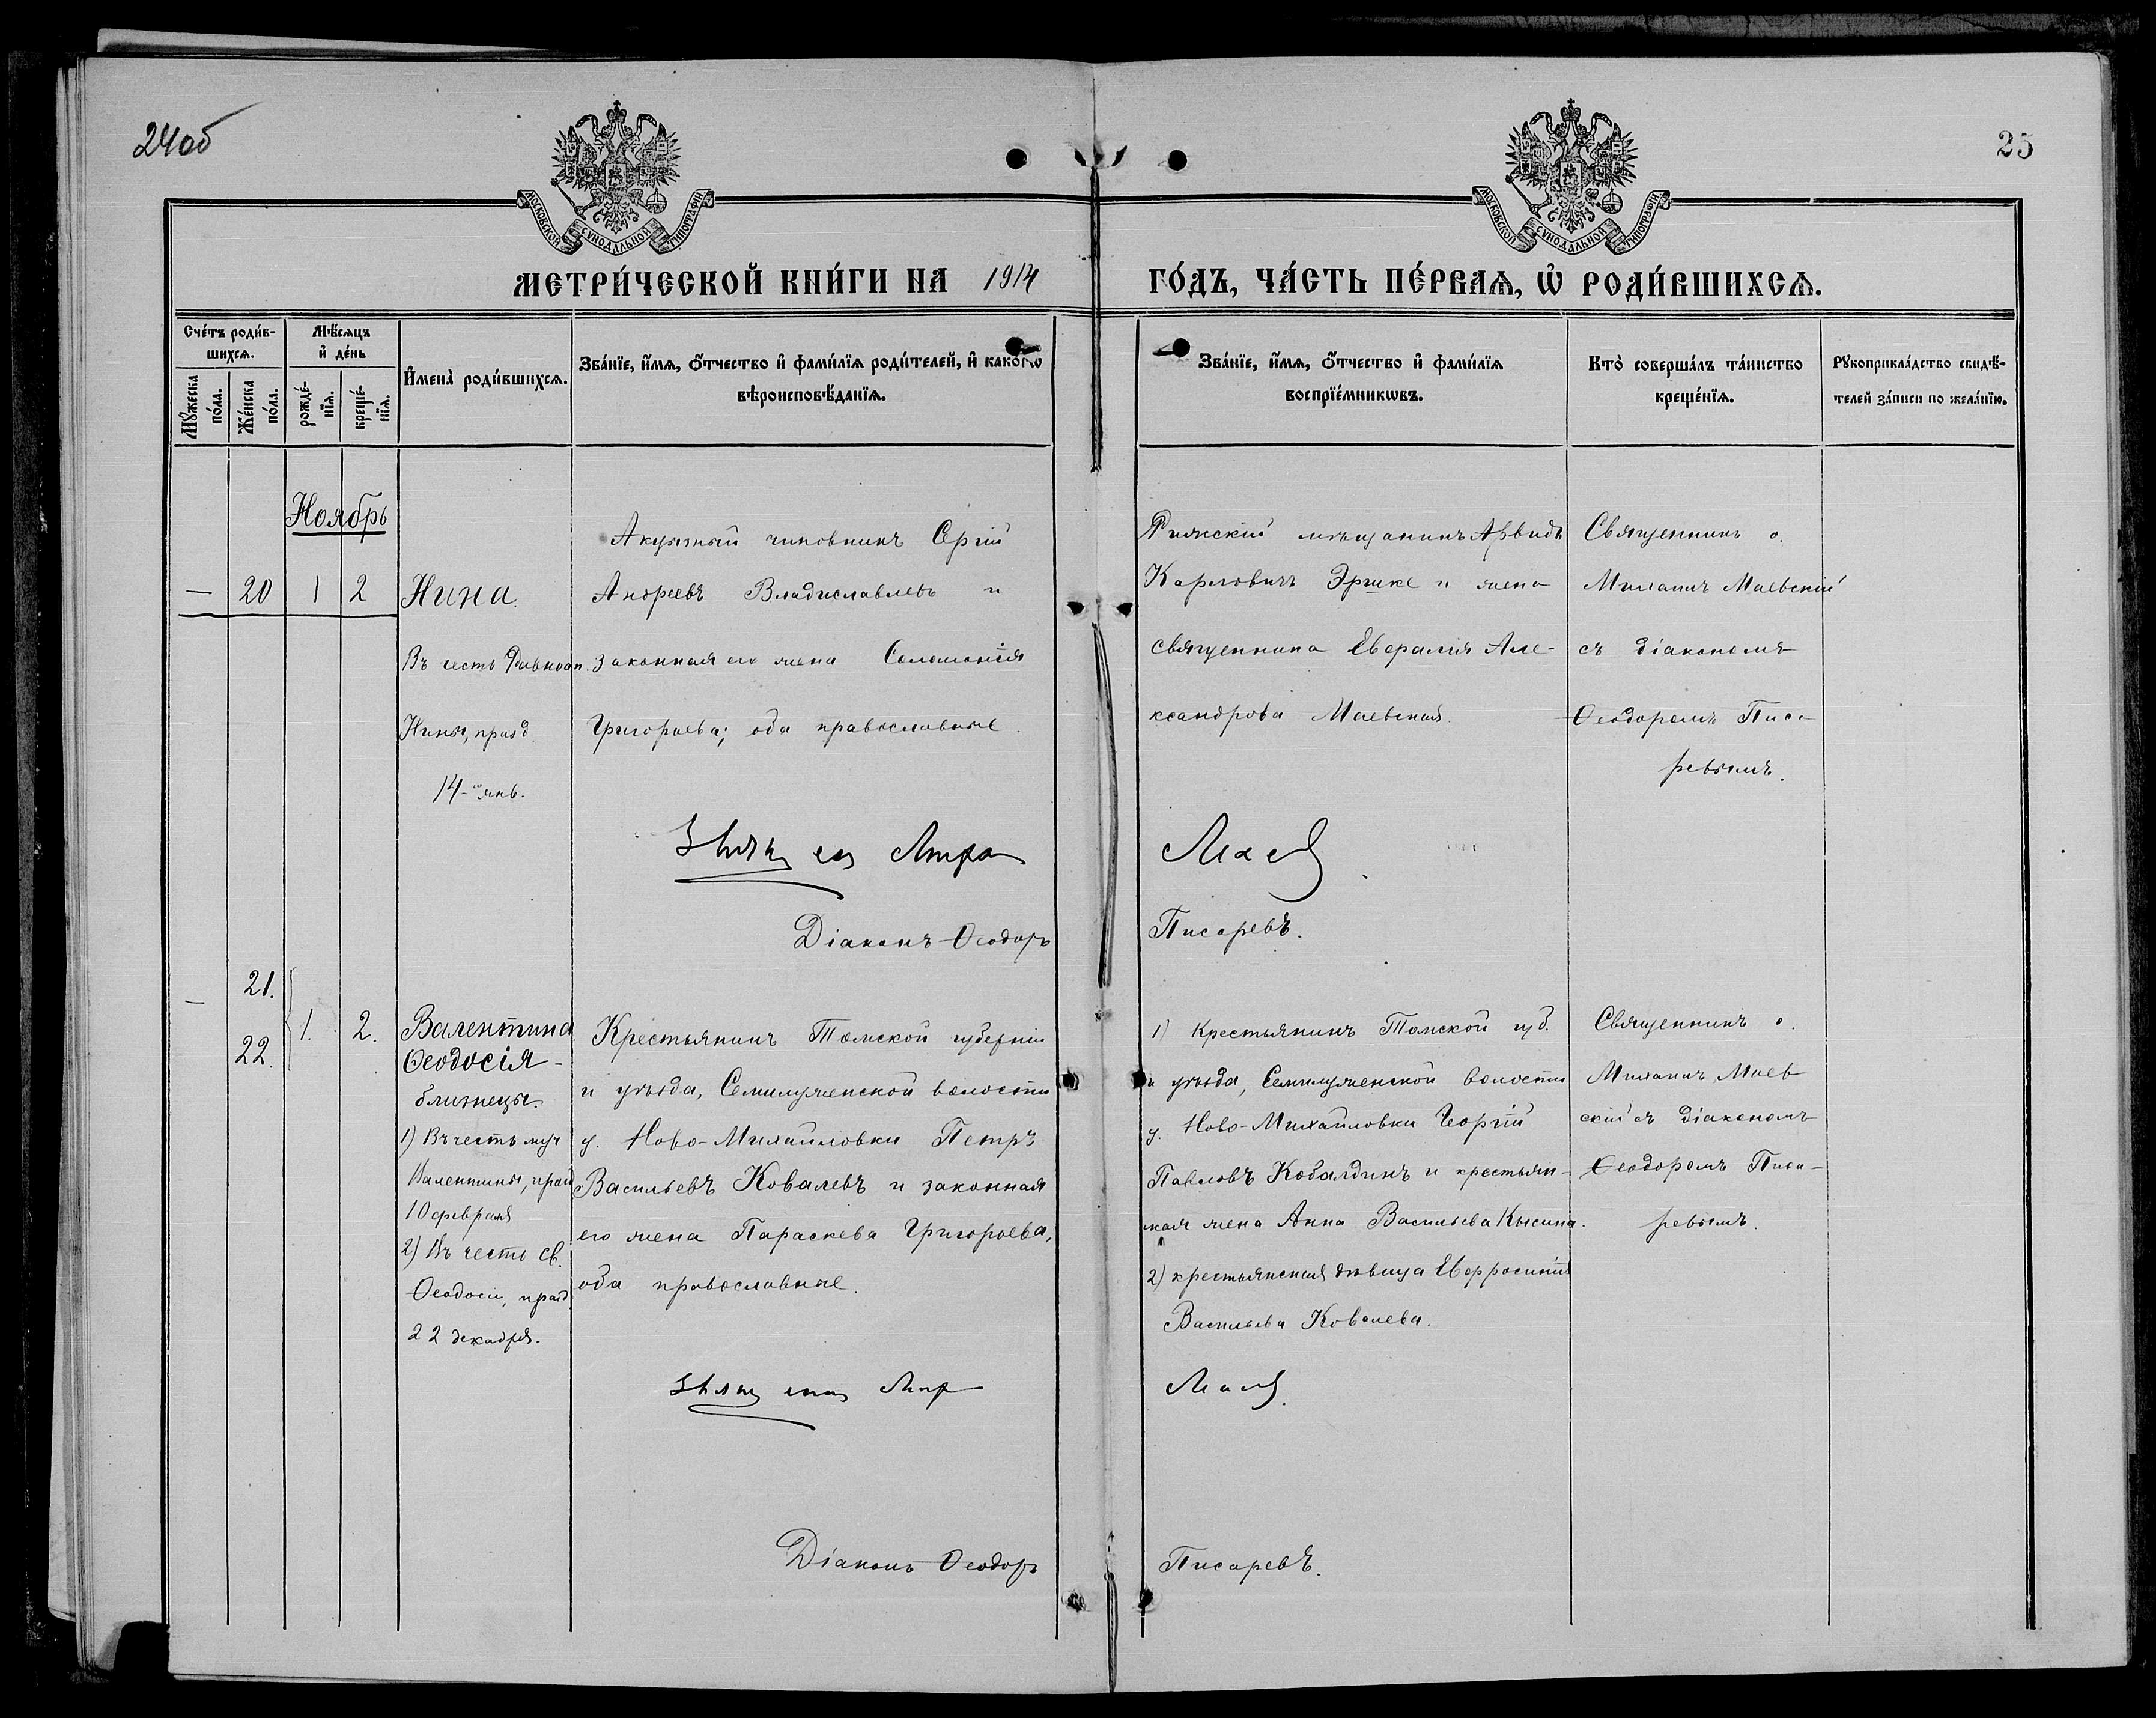 24об
25
МОСКОВСКОЙ СУНОДАЛЬНОЙ ТИПОГРАФІИ
МОСКОВСКОЙ СУНОДАЛЬНОЙ ТИПОГРАФІИ
МЕТРИ́ЧЕСКОЙ КНИ́ГИ НА 1914 ГО́ДЪ, ЧА́СТЬ ПЕ́РВАѦ, Ѡ҆ РОДИ́ВШИХСѦ.
Сче́тъ роди́в-
шихсѧ.
Мꙋ́жеска
по́ла.
Же́нска
по́ла.
Мѣ́сѧцъ
и҆ де́нь
рожде́-
нїѧ.
креще́-
нїѧ.
И҆мена̀ роди́вшихсѧ.
Зва́нїе, и҆́мѧ, о҆́тчество и҆ фами́лїѧ роди́телей, и҆ како́гѡ
вѣроисповѣ́данїѧ.
Зва́нїе, и҆́мѧ, о҆́тчество и҆ фами́лїѧ
воспрїе́мникѡвъ.
Кто̀ соверша́лъ та́инство
креще́нїѧ.
Рꙋкоприкла́дство свидѣ́-
телей за́писи по жела́нїю.
Ноябрь
— 20 1 2
Нина.
Въ честь Равноап.
Нины, празд.
14-го янв.
Акцызный чиновникъ Сергій
Андреевъ Владиславлевъ и
законная его жена Соломонія
Григорьева; оба православные.
Рижскій мѣщанинъ Арвидъ
Карловичъ Эрнке и жена
священника Евфалія Але-
ксандрова Маевская.
Священникъ о.
Михаилъ Маевскій
съ діакономъ
Ѳеодоромъ Писа-
ревымъ.
Діаконъ Ѳеодоръ Писаревъ.
— 21.
22.
1. 2.
Валентина
Ѳеодосія -
близнецы.
1) Въ честь муч
Валентины, празд
10 февраля
2) Въ честь св.
Ѳеодосіи, празд
22 декабря.
Крестьянинъ Томской губерніи
и уѣзда, Семилуженской волости
у. Ново-Михайловки Петръ
Васильевъ Ковалевъ и законная
его жена Параскева Григорьева,
оба православные.
1) Крестьянинъ Томской губ.
и уѣзда, Семилуженской волости
у. Ново-Михайловки Георгій
Павловъ Кобалдинъ и крестьян-
ская жена Анна Васильева Кысина.
2) крестьянская дѣвица Евфросинія
Васильева Ковалева.
Священникъ о.
Михаилъ Маев
скій съ діакономъ
Ѳеодоромъ Писа-
ревымъ.
Діаконъ Ѳеодоръ Писаревъ.